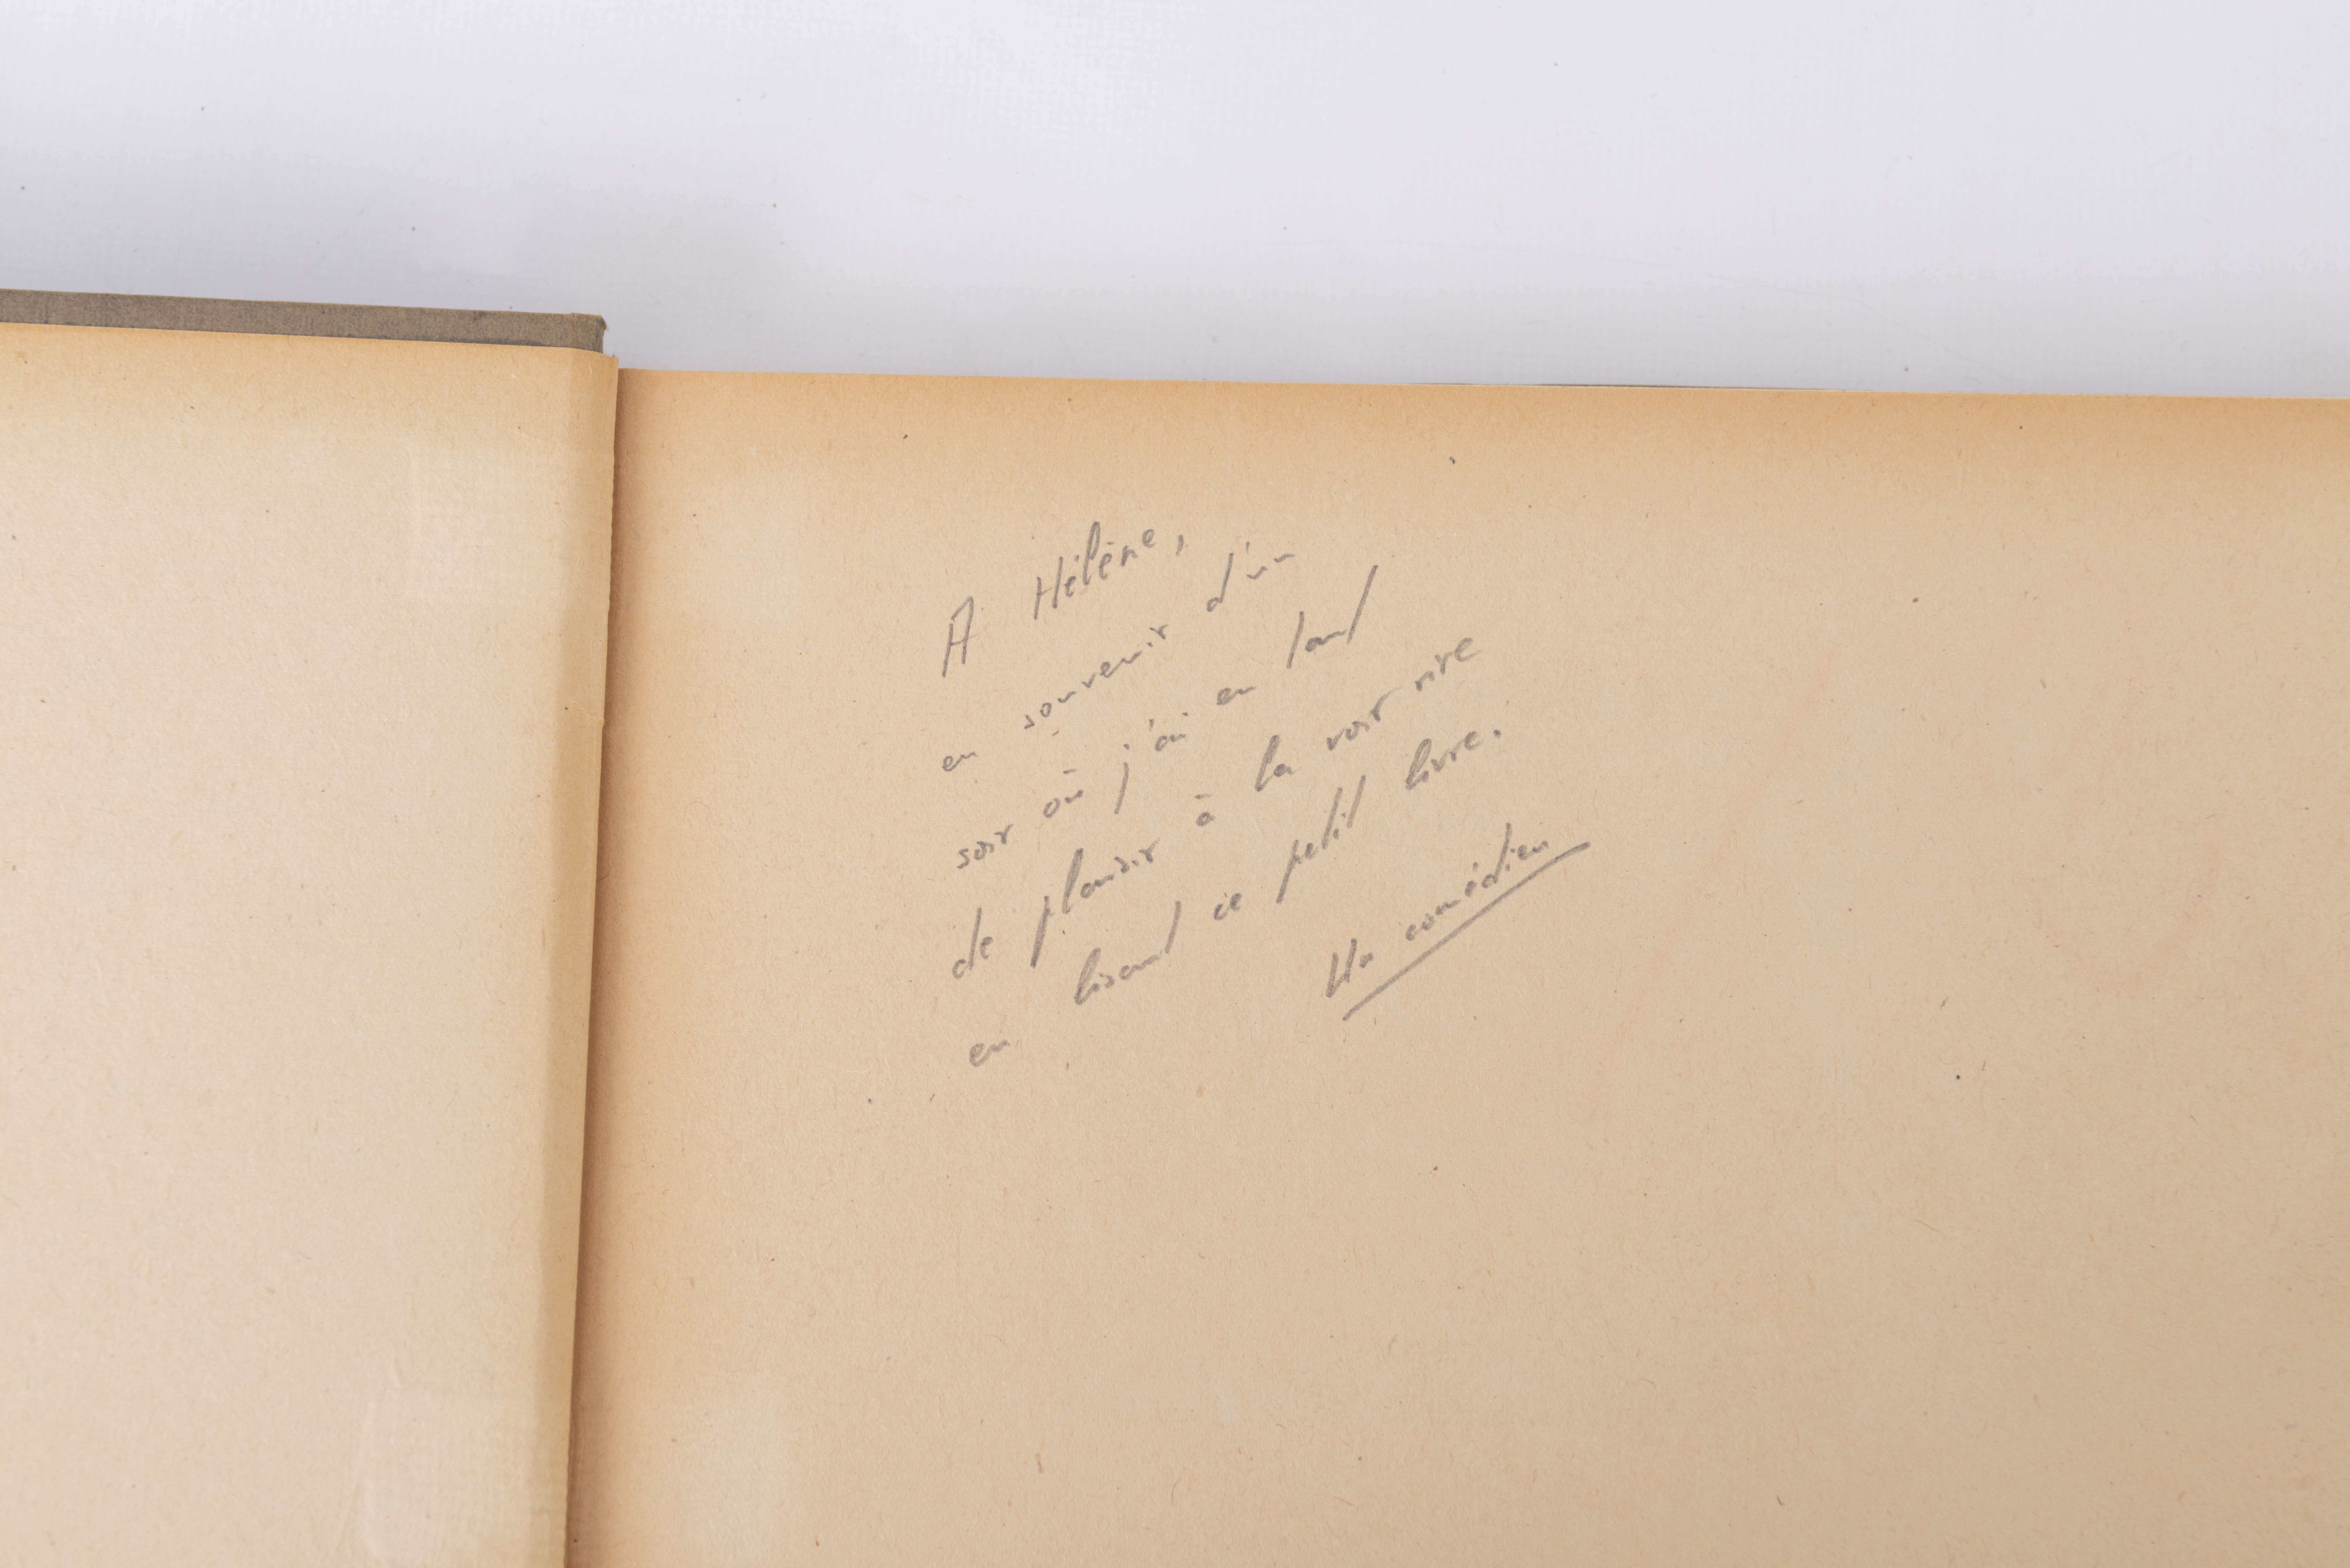 A Hélène,
en souvenir d'un
soir où j'ai eu tant
de plaisir à la voir rire
en lisant ce petit livre.
Un comédien